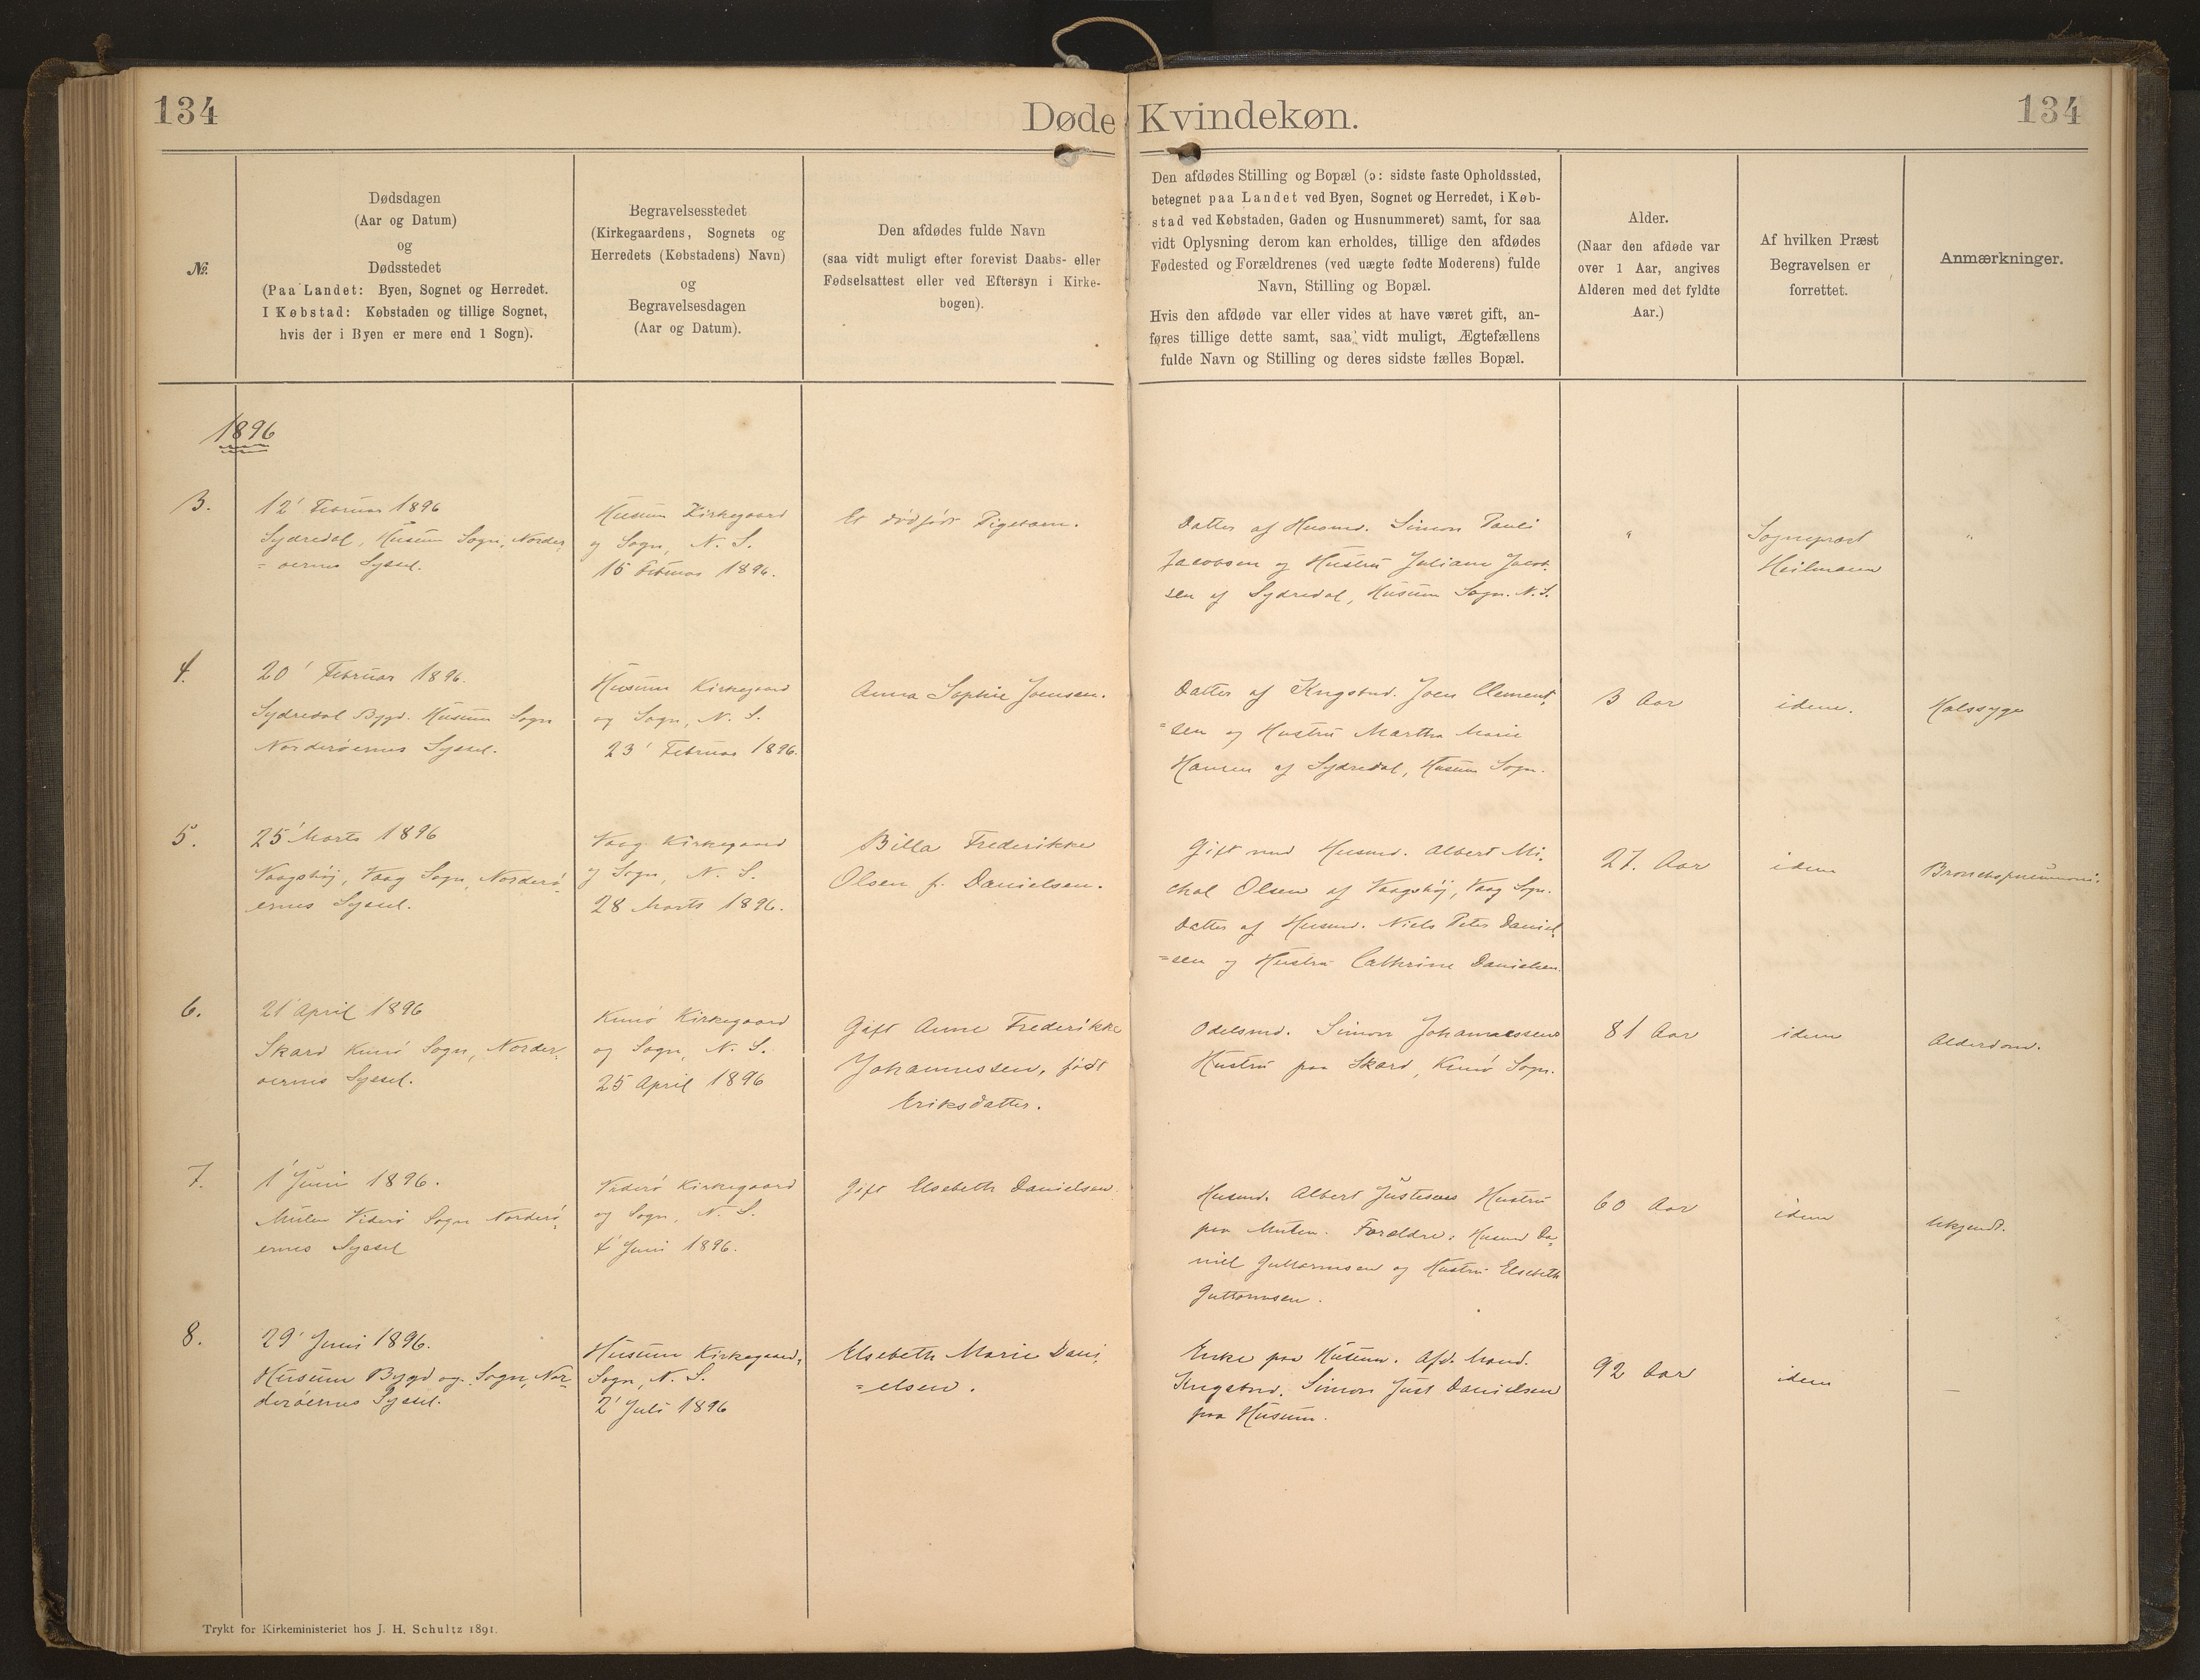 134
Døde Kvindekøn.
134
№.
Dødsdagen
(Aar og Datum)
og
Dødsstedet
(Paa Landet: Byen, Sognet og Herredet.
I Købstad: Købstaden og tillige Sognet,
hvis der i Byen er mere end 1 Sogn).
Begravelsesstedet
(Kirkegaardens, Sognets og
Herredets (Købstadens) Navn)
og
Begravelsesdagen
(Aar og Datum).
Den afdødes fulde Navn
(saa vidt muligt efter forevist Daabs- eller
Fødselsattest eller ved Eftersyn i Kirke-
bogen).
Den afdødes Stilling og Bopæl (ɔ: sidste faste Opholdssted,
betegnet paa Landet ved Byen, Sognet og Herredet, i Køb-
stad ved Købstaden, Gaden og Husnummeret) samt, for saa
vidt Oplysning derom kan erholdes, tillige den afdødes
Fødested og Forældrenes (ved uægte fødte Moderens) fulde
Navn, Stilling og Bopæl.
Hvis den afdøde var eller vides at have været gift, an-
føres tillige dette samt, saa vidt muligt, Ægtefællens
fulde Navn og Stilling og deres sidste fælles Bopæl.
Alder.
(Naar den afdøde var
over 1 Aar, angives
Alderen med det fyldte
Aar.)
Af hvilken Præst
Begravelsen er
forrettet.
Anmærkninger.
1896
3.
12' Februar 1896
Sydredal, Husum Sogn, Norder
=øernes Syssel.
Husum Kirkegaard
og Sogn, N. S.
15 Februar 1896.
Et dødfødt Pigebarn.
Datter af Husmd. Simon Pauli
Jacobsen og Hustru Juliane Jacob-
sen af Sydredal, Husum Sogn. N. S.
"
Sognepræst
Heilmann
"
4.
20' Februar 1896.
Sydredal Bygd. Husum Sogn
Norderøernes Syssel.
Husum Kirkegaard
og Sogn, N. S.
23' Februar 1896.
Anna Sophie Joensen.
Datter af Kngsbnd. Joen Clement,
=sen og Hustru Martha Marie
Hansen af Sydredal, Husum Sogn.
3 Aar
idem.
Halssyge
5.
25' Marts 1896
Vaagshøj, Vaag Sogn, Norderø-
ernes Syssel.
Vaag Kirkegaard
og Sogn, N. S.
28 Marts 1896.
Billa Frederikke
Olsen f. Danielsen.
Gift med Husmd. Albert Mi-
chal Olsen af Vaagshøj, Vaag Sogn.
Datter af Husmd. Niels Peter Daniel
=sen og Hustru Cathrine Danielsen.
27. Aar
idem
Bronchopneumoni.
6.
21' April 1896
Skard Kunø Sogn, Norder-
øernes Syssel.
Kunø Kirkegaard
og Sogn, N. S.
25 April 1896
Gift Anne Frederikke
Johannessen, født
Eriksdatter.
Odelsmd. Simon Johannessens
Hustru paa Skard, Kunø Sogn.
81 Aar
idem
Alderdom.
7.
1' Juni 1896.
Mulen Viderø Sogn Norderø-
ernes Syssel
Viderø Kirkegaard
og Sogn, N. S.
4' Juni 1896.
Gift Elsebeth Danielsen
Husmd. Albert Justesens Hustru
paa Mulen. Forældre: Husmd Da-
niel Guttormsen og Hustru Elsebeth
Guttormsen.
60 Aar
idem
Ukjendt.
8.
29' Juni 1896.
Husum Bygd og Sogn, Nor-
derøernes Syssel.
Husum Kirkegaard,
Sogn, N. S.
2' Juli 1896
Elsebeth Marie Dani-
=elsen.
Enke paa Husum. Afd. Mand.
Kngsbnd. Simon Just Danielsen
paa Husum.
92 Aar
idem
—
Trykt for Kirkeministeriet hos J. H. Schultz 1891.